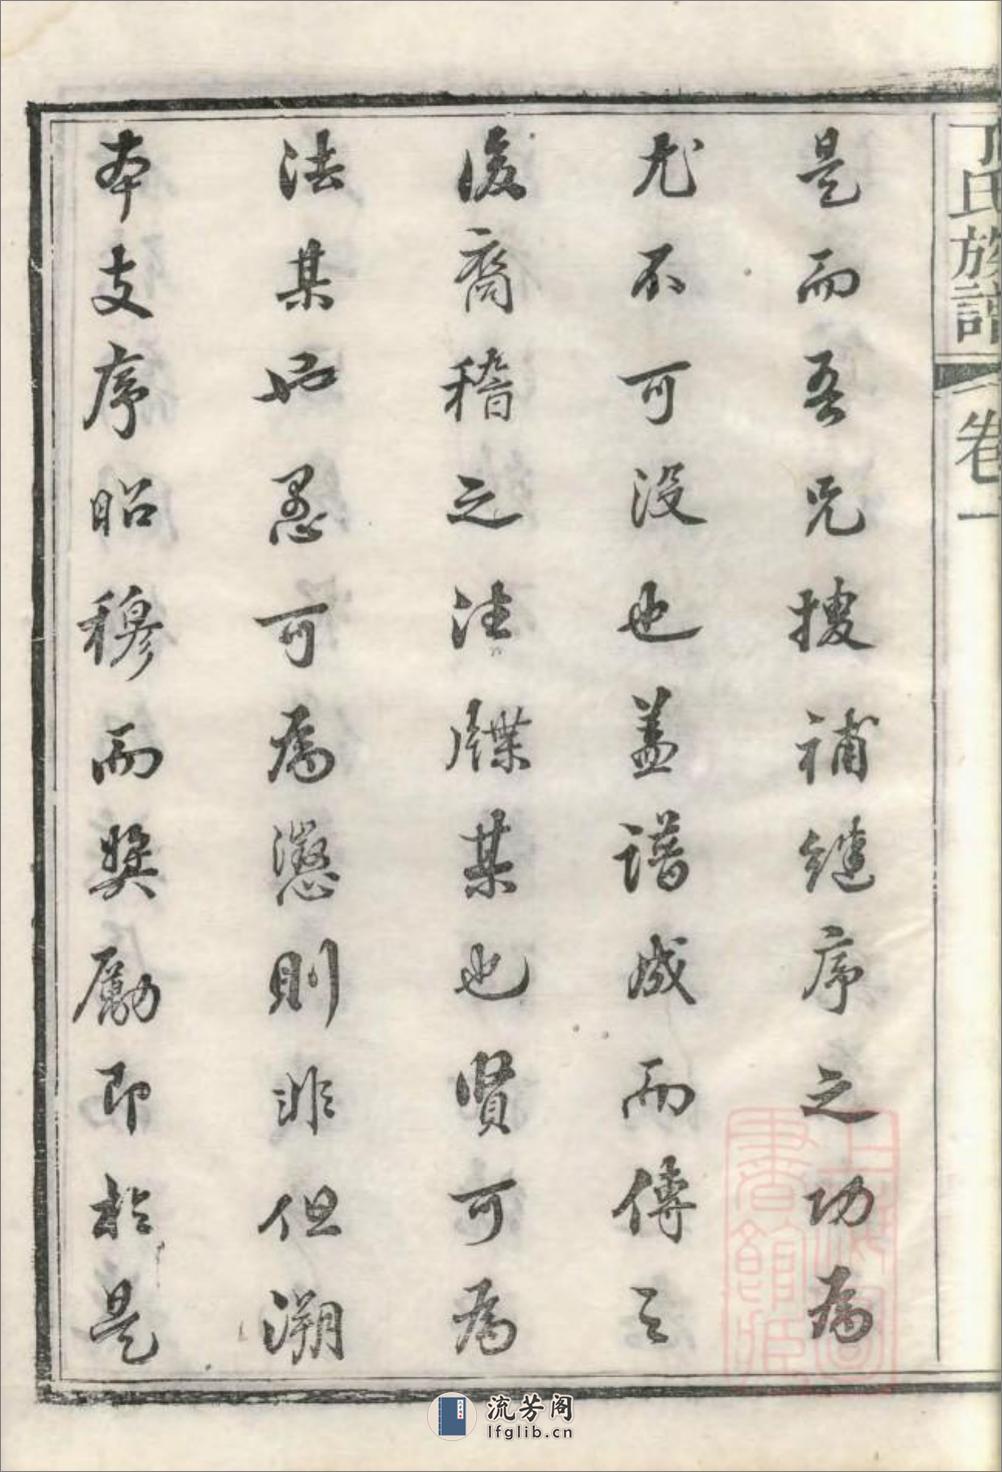 氏族譜
卷一
是而吾兄搜補繼序之功爲
尤不可没也蓋譜成而傳之
後裔稽之法牒某也賢可爲
法某也愚可爲懲則非但溯
本支序昭穆而奬勵即於是
上海圖書館藏
流芳阁
lfglib.cn